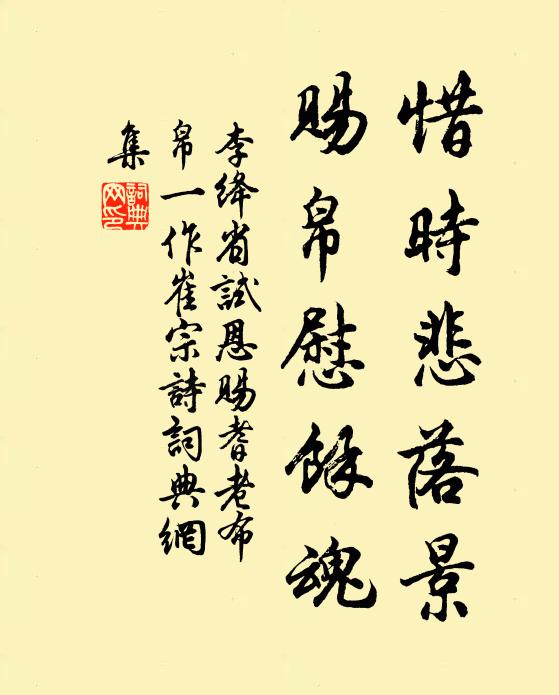 惜時悲落景
賜帛慰餘魂
李絳省試恩賜耆老布
帛一作崔宗詩詞典網
集
詞典网印